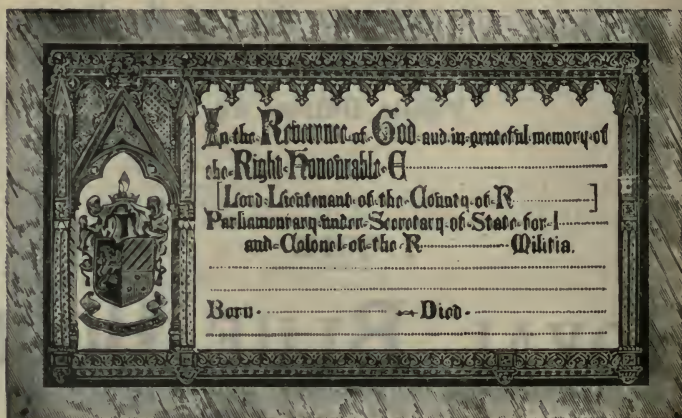 In the Reverence of God and in grateful memory of
the Right Honourable E
[Lord Lieutenant of the County of R ]
Parliamentary under Secretary of State for I
and Colonel of the R Militia.
Born Died